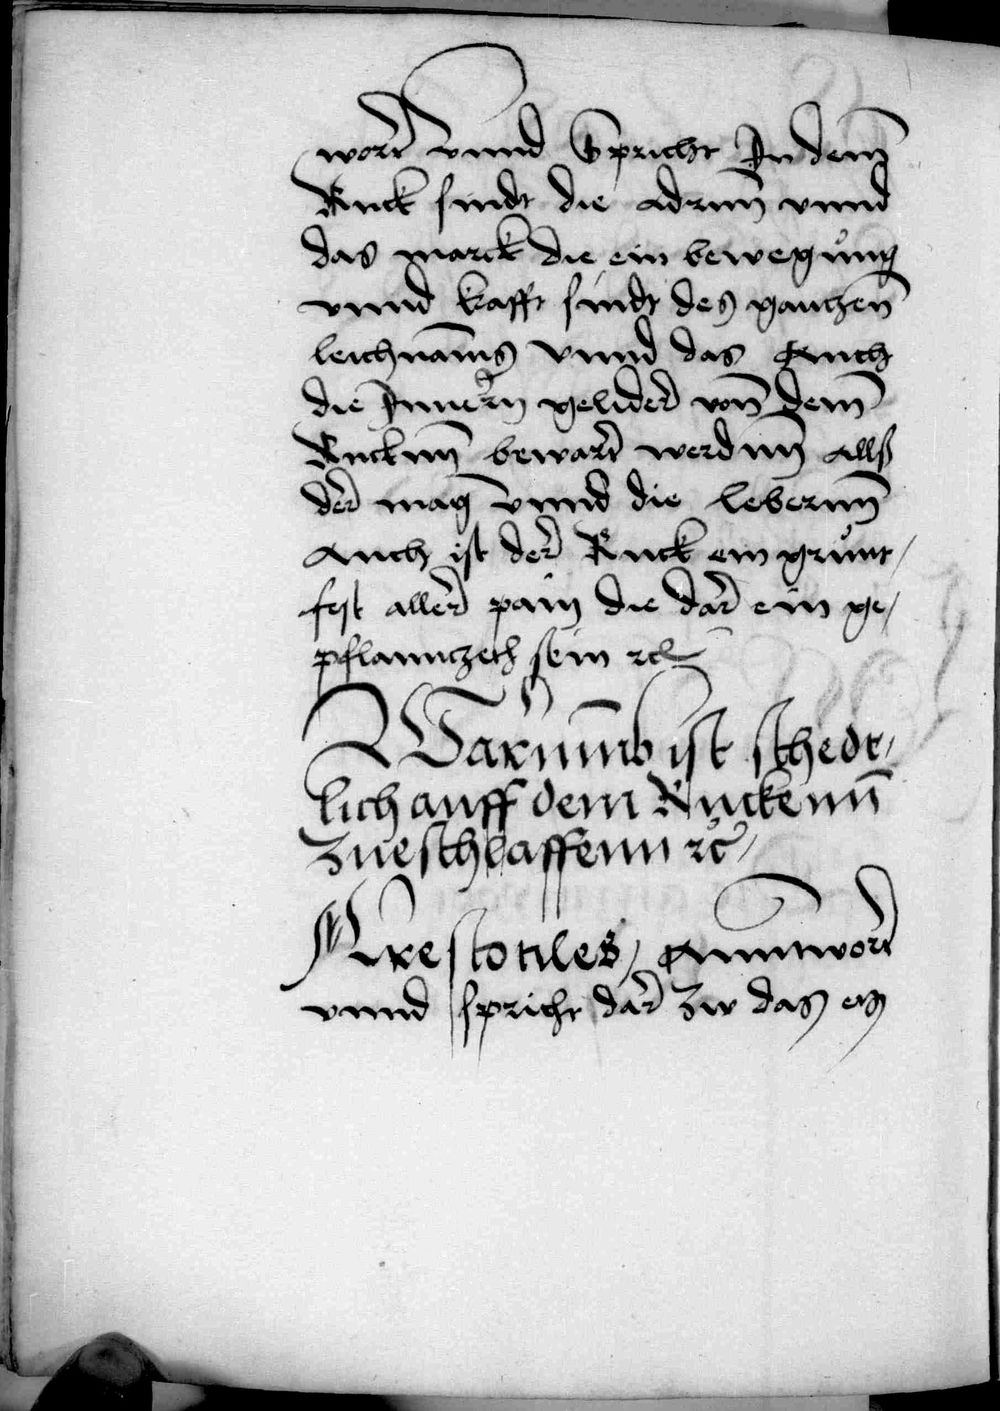 wort vnnd Spricht In dem̄
Ruck sindt die adrnn̄ vnnd
das marck die ein bewegůng
vnnd krafft sindt des gantzen̄
leichnam̄s vnnd das Auch
die Innern̄ gelider von̄ dem̄
Rucknn̄ bewart werdnn̄ allß
der mag vnnd die lebernn̄
Auch ist der Ruck ein grůnt/
fest aller pain die dar ein ge/
pflanntzeth sein ꝛc
Warumb ist schedt/
lich auff dem Ruckenn̄
zue schlaffenn ꝛc/
Arestotiles/ Anntwort
vnnd spricht dar zw das es